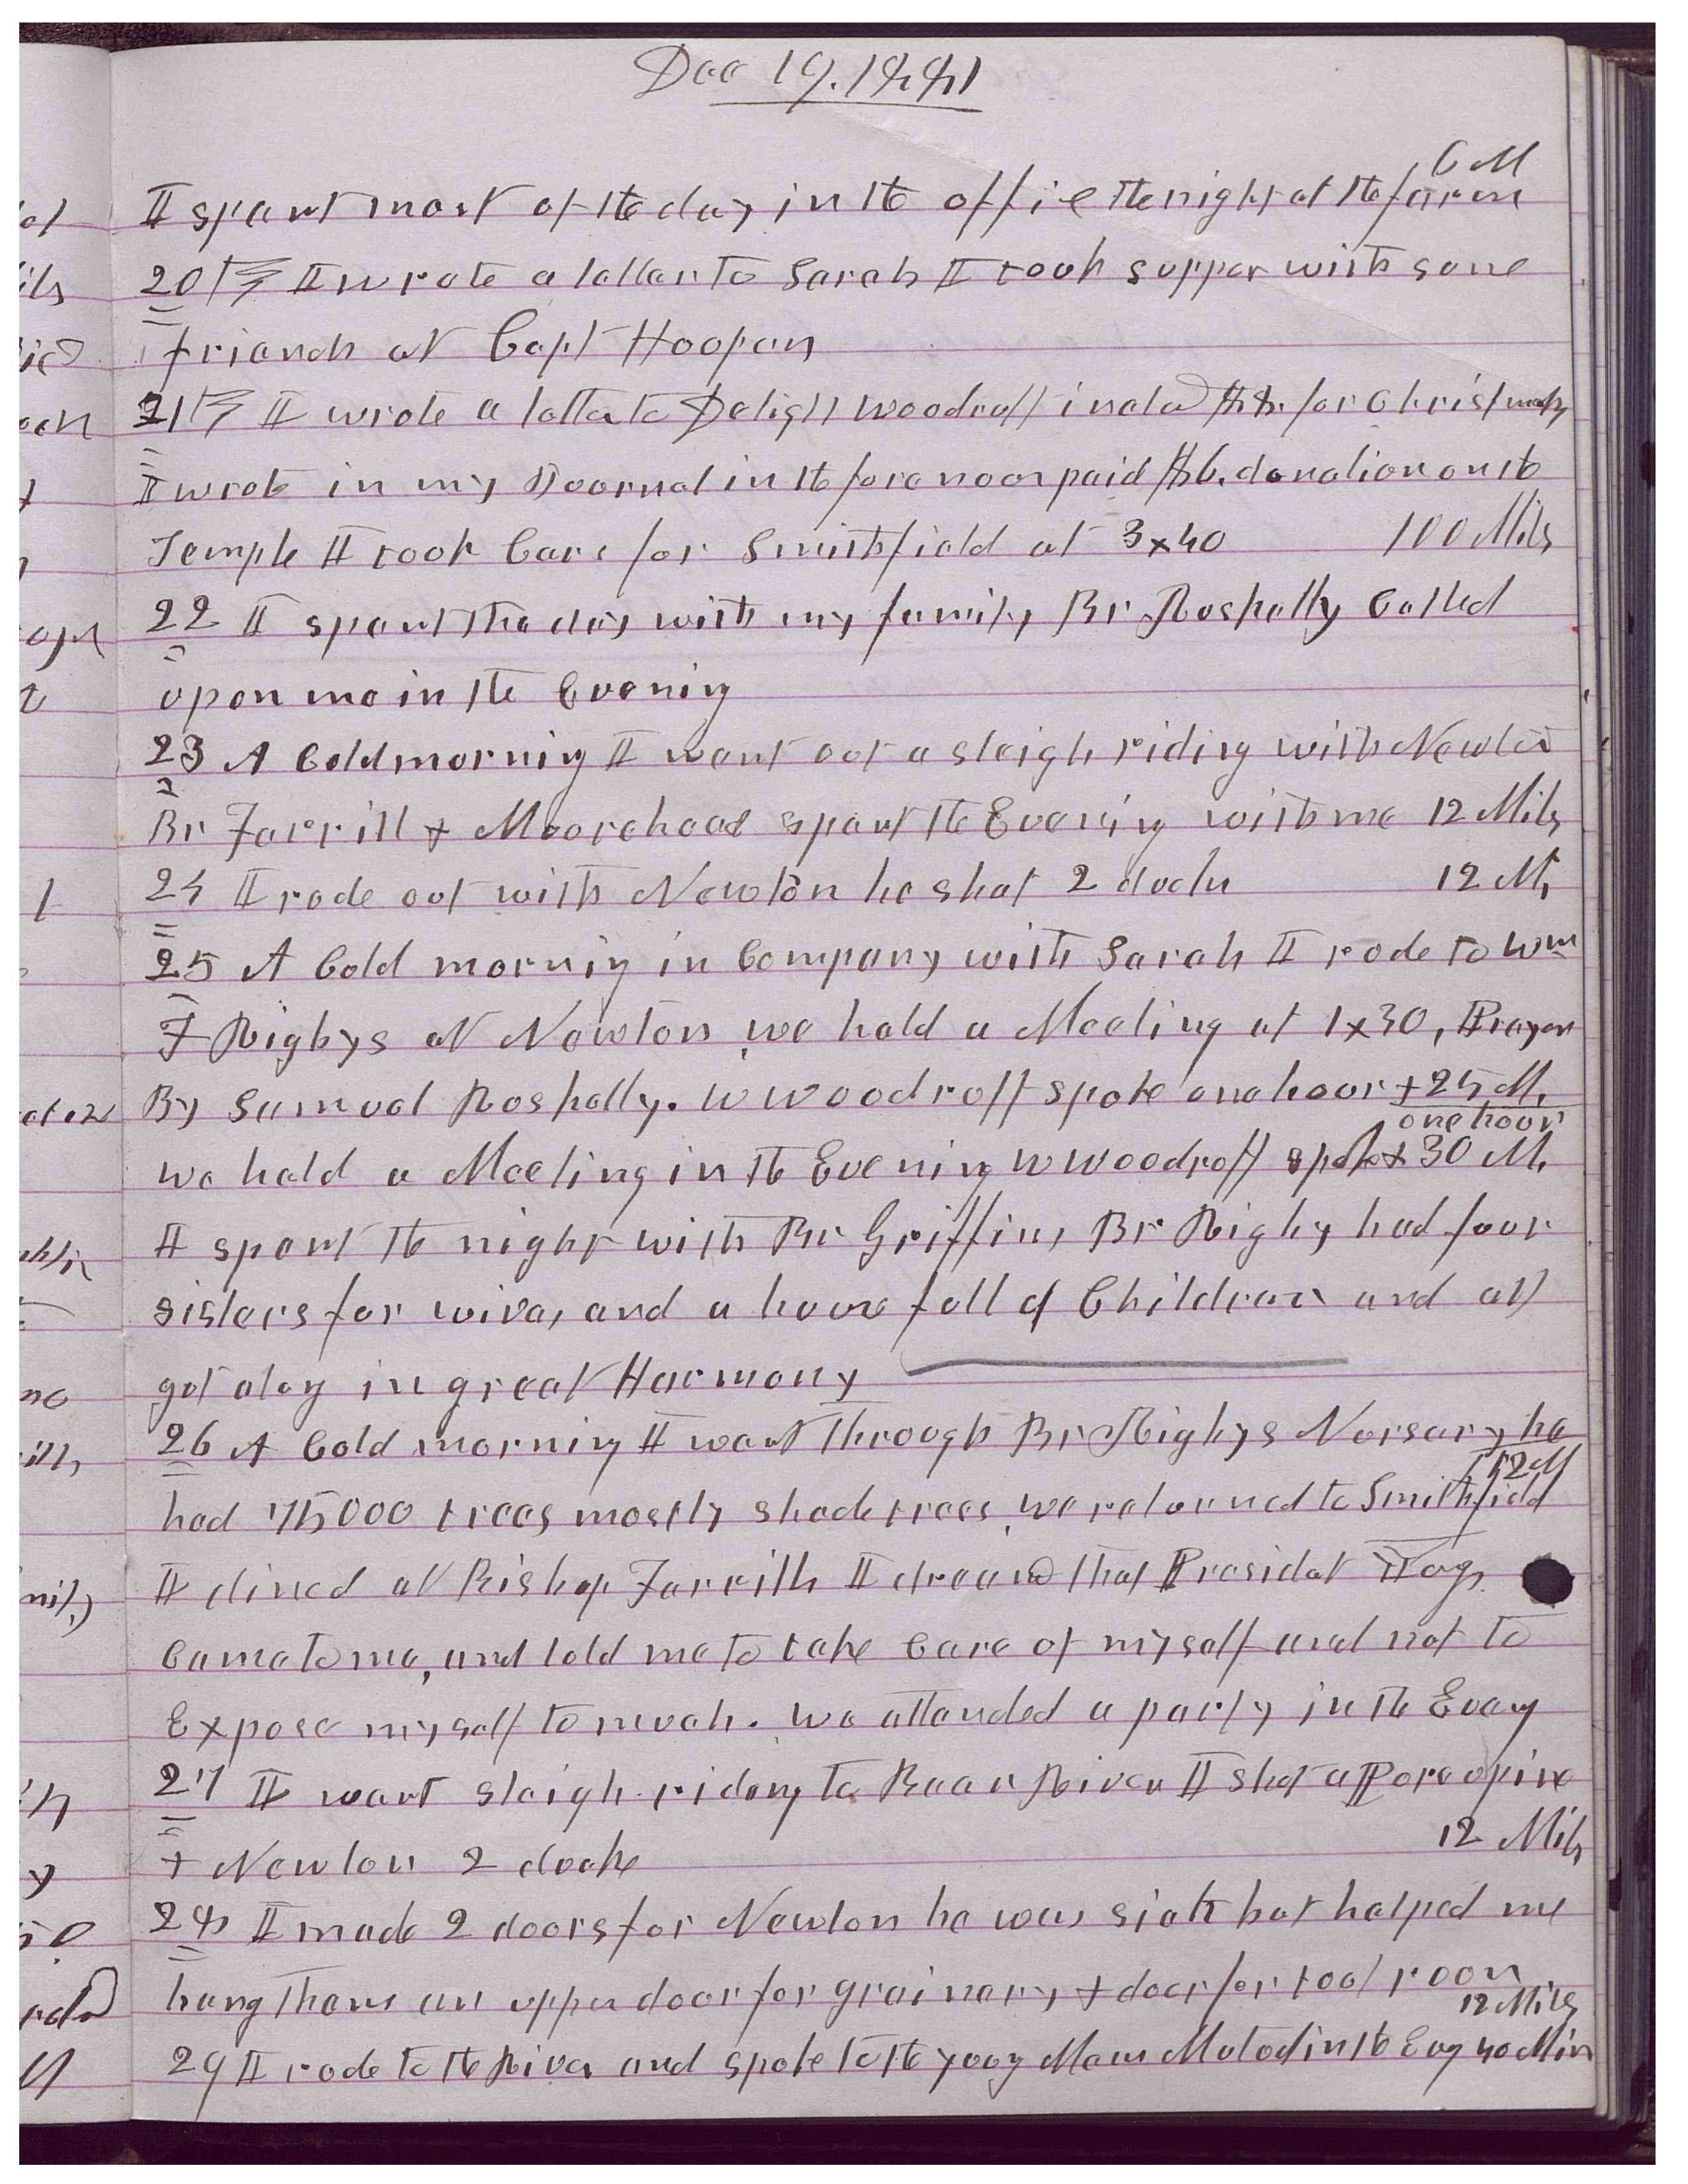 Dec 19, 1881
6 M
I spent most of the day in the office the night at the farm
20th I wrote a letter to Sarah I took supper with some
friends at Capt Hoopers
21st I wrote a letter to Delight Woodruff incld $8. for Christmas
I wrote in my Journal in the forenoon paid $6. donation on the
Temple I took Cars for Smithfield at 3x40 100 Mils
22 I spent the day with my family Br Roskelly Called
upon me in the Evening
23 A Cold morning I went out a sleigh riding with Newton
Br Farrill & Moorehead spent the Evening with me 12 Mils
24 I rode out with Newton he shot 2 ducks 12 M,
25 A Cold morning in Company with Sarah I rode to Wm
F Rigbys at Newton, we held a Meeting at 1x30, Prayer
By Samuel Roskelly. W Woodruff spoke one hour + 25 M,
one hour
we held a Meeting in the Evening W Woodruff spoke + 30 M,
I spent the night with Br Griffin, Br Rigby had four
sisters for wives, and a house full of Children and all
got along in great Harmony
26 A Cold morning I went through Br Rigbys Nursery he
12 M
had 75000 trees mostly shade trees, we returned to Smithfield
I dined at Bishop Farrills I dreamd that Presidet Young
Came to me, and told me to take Care of myself and not to
Expose myself to much. We attended a party in the Eveng
27 I went sleigh riding to Bear River I shot a Porcupine
12 Mils
+ Newton 2 ducks
28 I made 2 doors for Newton he was sick but helped me
hang them an upper door for grainery, + door for tool room
12 Mils
29 I rode to the River and spoke to the young Mens Mutual in the Evg 40 Min